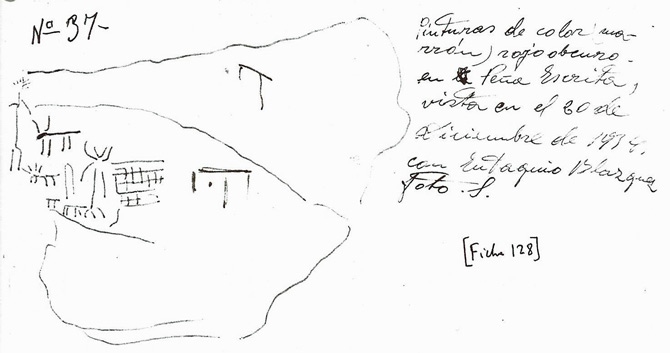 Nº 37-
Pinturas de color (ma-
rrón) rojo obscuro-
en Peña Escrita,
vista en el 20 de
Diciembre de 1934,
con Eutaquio Blazquez
Foto S.
[Ficha 128]